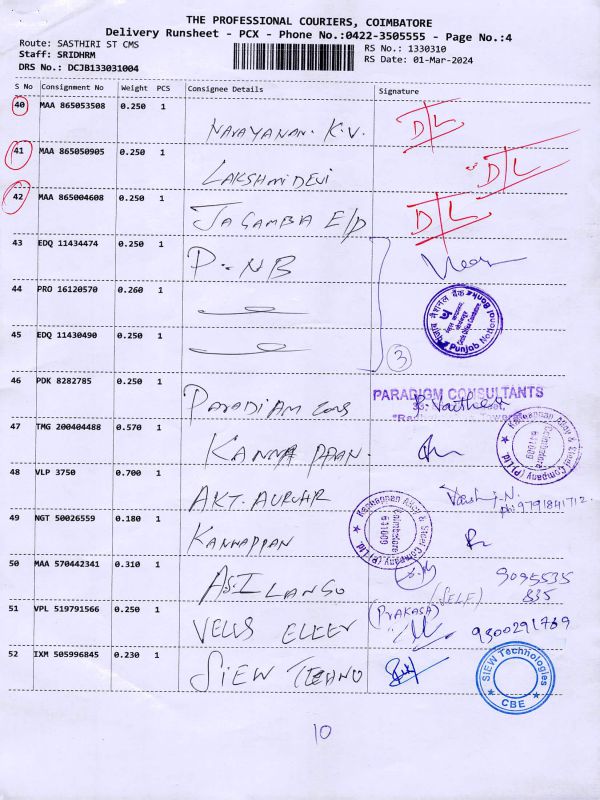 THE PROFESSIONAL COURIERS, COIMBATORE
Delivery Runsheet - PCX - Phone No.:0422-3505555 - Page No.:4
Route: SASTHIRI ST CMS
RS No.: 1330310
Staff: SRIDHRM
RS Date: 01-Mar-2024
DRS No.: DCJB133031004
S No Consignment No Weight PCS Consignee Details Signature
40 MAA 865053508 0.250 1 NARAYANAN. K.V. D/L
41 MAA 865050905 0.250 1 LAKSHMIDEVI D/L
42 MAA 865004608 0.250 1 JAGAMBA E/P D/L
43 EDQ 11434474 0.250 1 P-NB
44 PRO 16120570 0.260 1
Punjab National Bank
45 EDQ 11430490 0.250 1
3
46 PDK 8282785 0.250 1 PARADIAM CONS
PARADIGM CONSULTANTS
47 TMG 200404488 0.570 1 KANNAPPAN.
Kannappan Alloy & Steel Company (P) Ltd.
Coimbatore
641009
48 VLP 3750 0.700 1
ph: 9791841712.
49 NGT 50026559 0.180 1 KANNAPPAN
Kannappan Alloy & Steel Company (P) Ltd.
Coimbatore
641009
50 MAA 570442341 0.310 1 9095535
835
(SELF)
51 VPL 519791566 0.250 1 (PRAKASA)
9300291769
52 IXM 505996845 0.230 1 SIEW TECHNO
SIEW Technologies
CBE
10